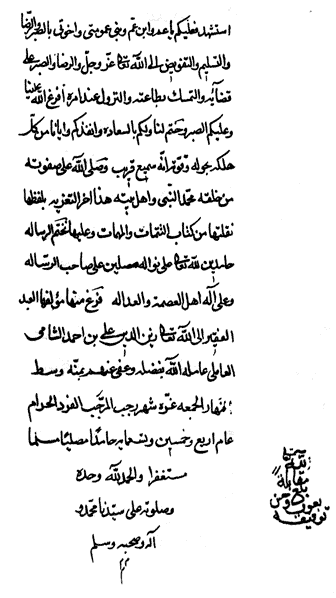 استشهد فعليكم يا عم وابن عم وبنى عمومتى واخوتى بالصبر والرضا
والتسليم والتفويض الى الله تعا عز وجل والرضا والصبر على
قضائه والتمسك بطاعته والنزول عند امره افرغ الله علينا
وعليكم الصبر وختم لنا ولكم بالسعادة وانقذكم وايانا من كل
هلكه بحوله وقوته انه سميع قريب وصلى الله على صفوته
من خلقه محمد النبى واهل بيته هذا اخر التعزيه بلفظها
نقلتها من كتاب التتمات والمهمات وعليها نختم الرساله
حامدين لله تعا على نواله مصلين على صاحب الرساله
وعلى آله اهل العصمة والعداله فرغ منها مؤلفها العبد
الفقير الى الله تعا زين الدين على بن احمد الشامى
العاملى عامله الله بفضله وعفى عنهم بمنه وسط
نهار الجمعه غرة شهر رجب المرجب الفرد الحرام
عام اربع وخمسين وتسعمايه حامدا مصليا مسلما
مستغفرا والحمد لله وحده
وصلوته على سيدنا محمد و
آله وصحبه وسلم
تم
بلغ
مقابلة
بعون
توفيقه